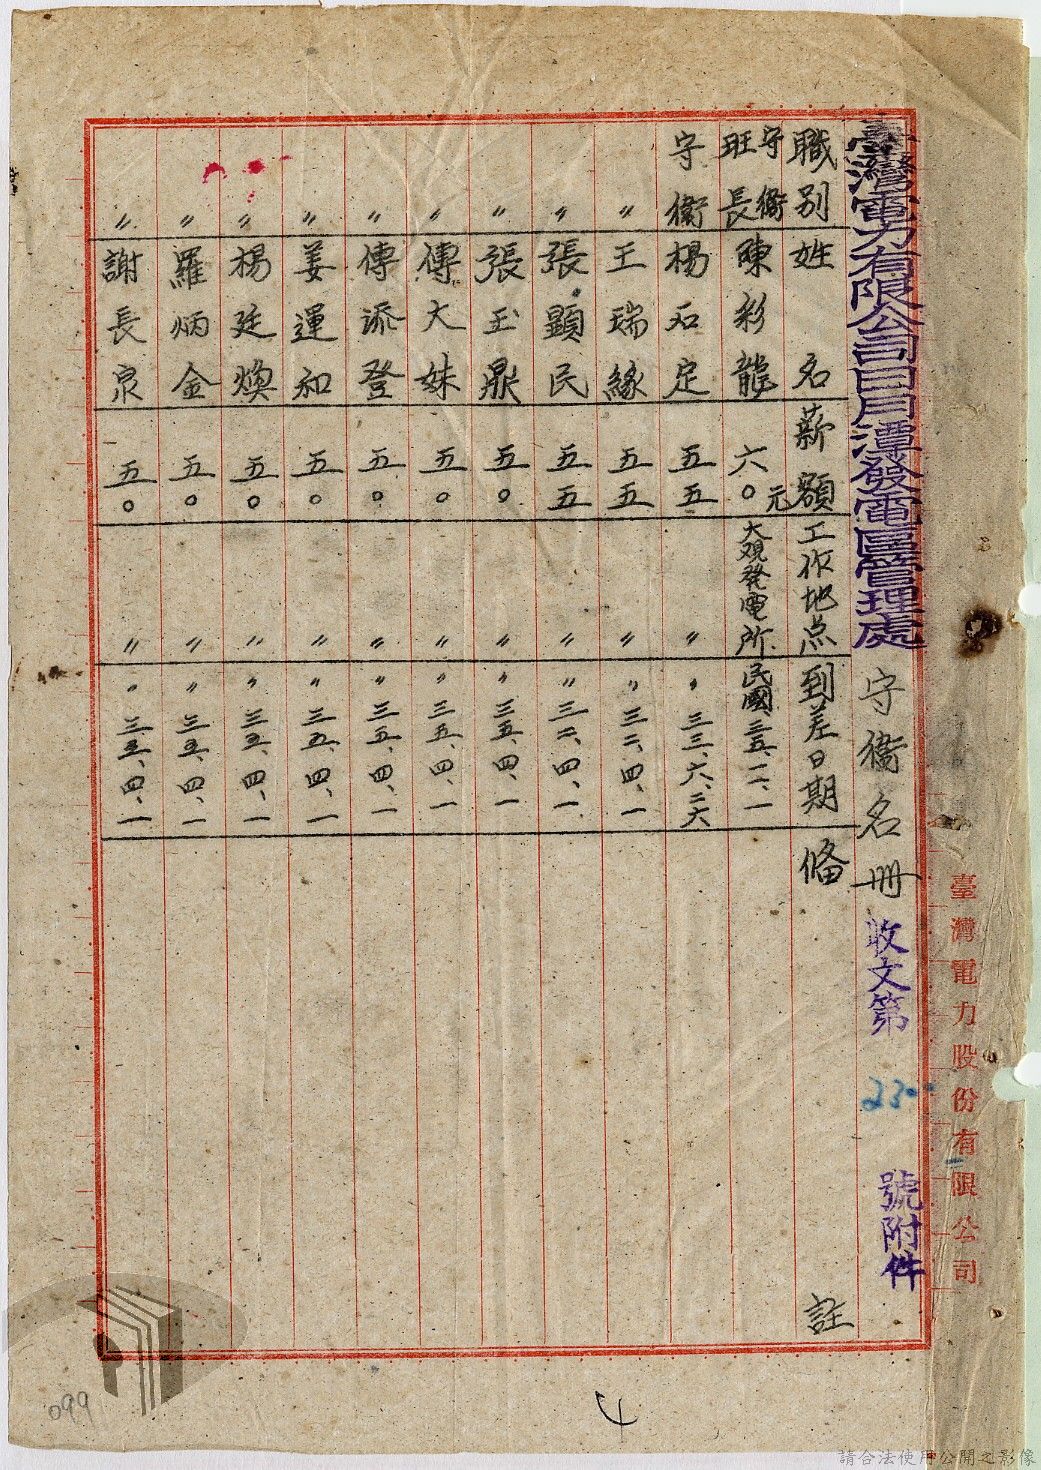 臺灣電力有限公司日月潭發電區管理處 守衛名冊 收文第 23 號附件
職別 姓名 薪額 工作地点 到差日期 俻註
守衛班長 陳彩龍 六〇元 大观發電所 民國三五、一二、一
守衛 楊石定 五五 〃 〃 三三、六、二六
〃 王瑞緣 五五 〃 〃 三二、四、一
〃 張顕民 五五 〃 〃 三二、四、一
〃 張玉鼎 五〇 〃 〃 三五、四、一
〃 傅大妹 五〇 〃 〃 三五、四、一
〃 傅添登 五〇 〃 〃 三五、四、一
〃 姜運和 五〇 〃 〃 三五、四、一
〃 楊廷煥 五〇 〃 〃 三五、四、一
〃 羅炳金 五〇 〃 〃 三五、四、一
〃 謝長泉 五〇 〃 〃 三五、四、一
臺灣電力股份有限公司
099
4
請合法使用公開之影像